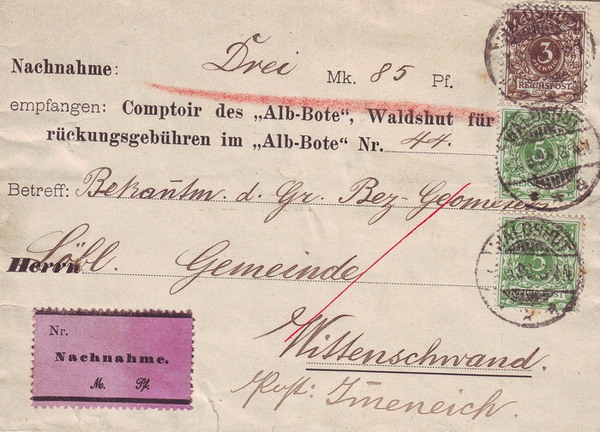 Nachnahme: Drei Mk. 85 Pf.
empfangen: Comptoir des „Alb-Bote“, Waldshut für
rückungsgebühren im „Alb-Bote“ Nr. 44.
Betreff: Bekanntm. d. Gr. Bez-Geometers
Herrn Löbl. Gemeinde
Wittenschwand.
Post: Immeneich.
Nr.
Nachnahme.
M. Pf.
3
PFENNIG
REICHSPOST
WALDSHUT
5
5
WALDSHUT